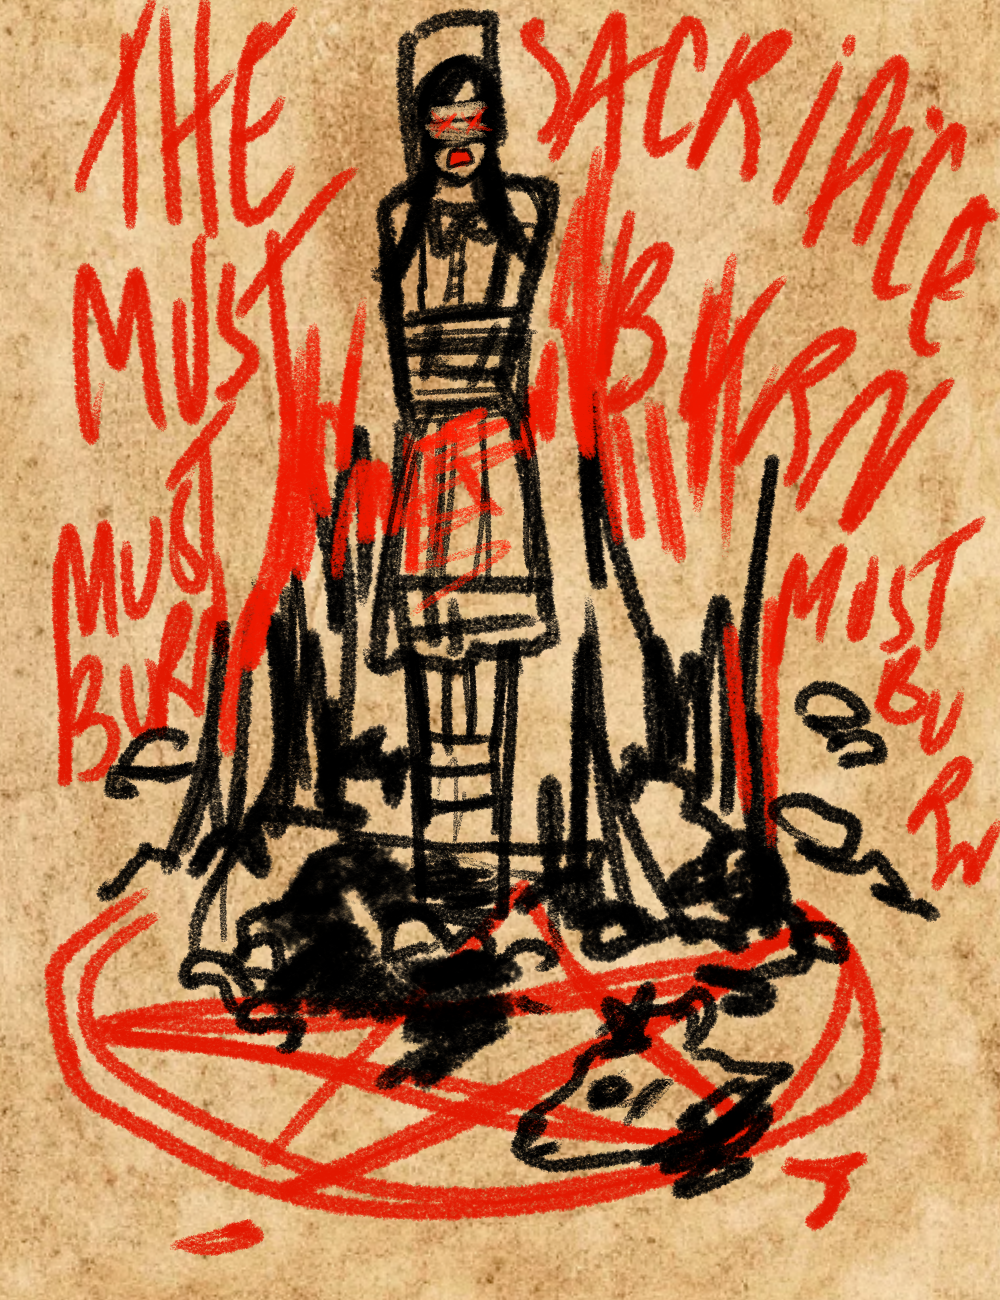 THE SACRIFICE
MUST BURN
MUST
BURN
MUST
BU
RN